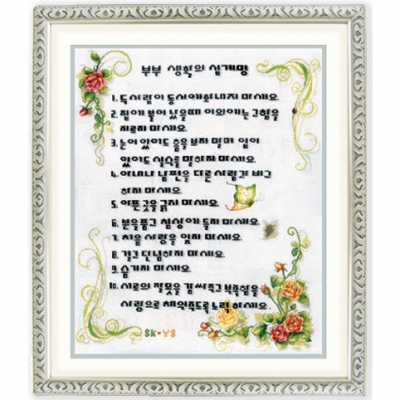 부부 생활의 십계명
1. 두사람이 동시에화내지 마세요.
2. 집에 불이 났을때 이외에는 고함을
지르지 마세요.
3. 눈이 있어도 흠을 보지 말며 입이
있어도 실수를 말하지 마세요.
4. 아내나 남편을 다른 사람과 비교
하지 마세요.
5. 아픈 곳을 긁지 마세요.
6. 분을품고 침상에 들지 마세요.
7. 처음 사랑을 잊지 마세요.
8. 결코 단념하지 마세요.
9. 숨기지 마세요.
10. 서로의 잘못을 감싸주고 부족함을
사랑으로 채워주도록 노력하세요.
SK♥YS